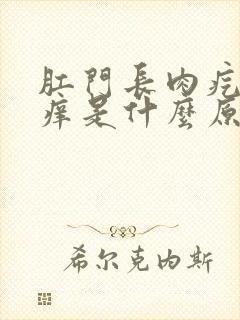 肛門長肉疙
痒是什麼原
希尔克内斯